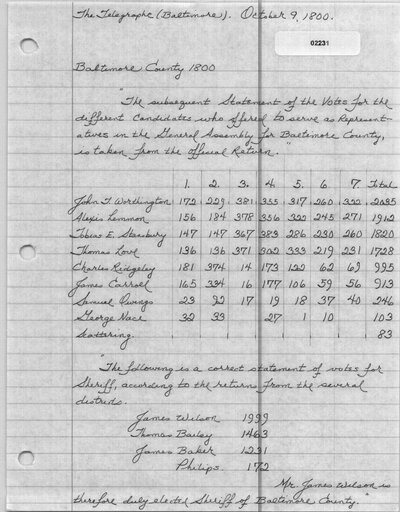 The Telegraphe (Baltimore). October 9, 1800.
02231
Baltimore County 1800
"The subsequent Statement of the Votes for the
different Candidates who offered to serve as Represent-
atives in the General Assembly for Baltimore County,
is taken from the Official Return."
1. 2. 3. 4. 5. 6 7. Total
John T Worthington 172 229 381 355 317 260 322 2035
Alexis Lemmon 156 184 378 356 322 245 271 1912
Tobias E. Stansbury 147 147 367 383 286 230 260 1820
Thomas Love 136 136 371 302 333 219 231 1728
Charles Ridgeley 181 374 14 173 122 62 69 995
James Carroll 165 334 16 177 106 59 56 913
Samuel Owings 23 92 17 19 18 37 40 246
George Nace 32 33 27 1 10 103
Scattering. 83
"The following is a correct statement of votes for
Sheriff, according to the returns from the several
districts.
James Wilson 1999
Thomas Bailey 1463
James Baker 1231
Philips. 172
Mr. James Wilson is
therefore duly elected Sheriff of Baltimore County."